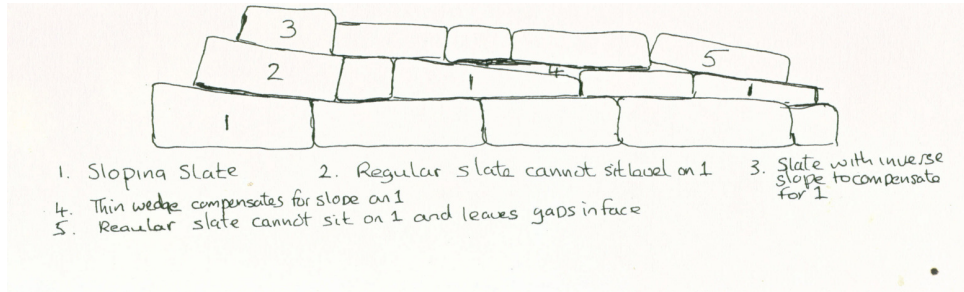 3
5
2
4
1
1
1
1. Sloping Slate 2. Regular slate cannot sit level on 1 3. Slate with inverse
slope to compensate
for 1
4. Thin wedge compensates for slope on 1
5. Regular slate cannot sit on 1 and leaves gaps in face